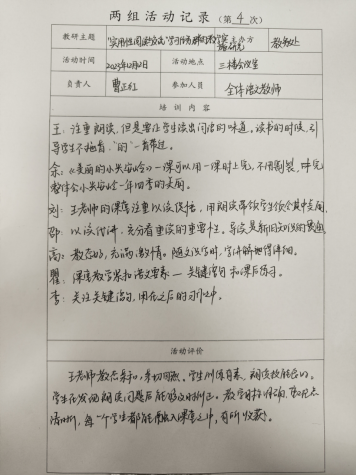 两组活动记录（第 4 次）
教研主题 "实用性阅读与交流"学习任务群的教学实施研究 主办方 教务处
活动时间 2023年12月12日 活动地点 三楼会议室
负责人 曹正红 参加人员 全体语文教师
培训内容
王：注重朗读，但是要让学生读出问后的味道。读书的时候，引
导学生不拖音，"的"一音带过。
余：《美丽的小兴安岭》一课可以用一课时上完，不用割裂，味
整体会小兴安岭一年四季的美丽。
刘：王老师的课堂注重以读促悟，用朗读带领学生
邵：以读代讲，充分看重读的重要性。导读是新旧知识的
高：教态好，充满激情。随文识字时，字讲解地很详细。
瞿：课堂教学紧扣语文要素—关键语句和课后练习。
李：关注关键语句，用在之后的习作中。
活动评价
王老师教态亲和，亲切自然。学生训练有素，朗读技能高。
学生在发现朗读问题后能够及时纠正。教学目标明确，重难点
清晰，每一个学生都能融入课堂之中，有所收获。